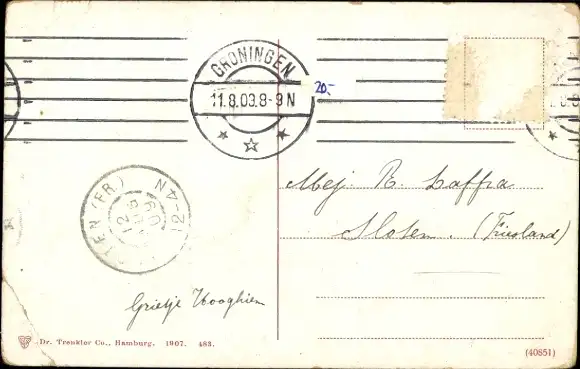 GRONINGEN
11.8.09.8-9N
20.-
Mej. R. Laffra
Sloten. (Friesland)
(FR.)
12-4N
Grietje Hooghiem
Dr. Trenkler Co., Hamburg. 1907. 483.
(40851)